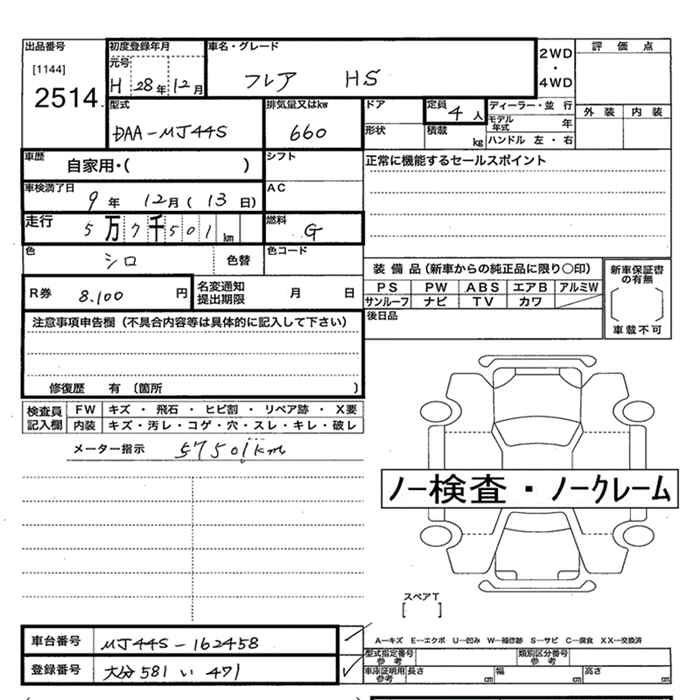 出品番号
[1144]
2514
初度登録年月
元号
H 28年 12月
車名・グレード
フレア HS
2WD
・
4WD
評価点
外装 内装
型式
DAA-MJ44S
排気量又はkw
660
ドア
形状
定員
4 人
積載
kg
ディーラー・並 行
モデル年式 年
ハンドル 左・右
車歴
自家用・( )
シフト
正常に機能するセールスポイント
車検満了日
9年 12月 ( 13日)
AC
走行
5万7千501km
燃料
G
色
シロ
色替
色コード
R券 8.100 円
名変通知
提出期限
月 日
装備品 (新車からの純正品に限り○印)
PS PW ABS エアB アルミW
サンルーフ ナビ TV カワ
後日品
新車保証書
の有無
車載不可
注意事項申告欄 (不具合内容等は具体的に記入して下さい)
修復歴 有 〔箇所 〕
検査員
記入欄
FW キズ・飛石・ヒビ割・リペア跡・X要
内装 キズ・汚レ・コゲ・穴・スレ・キレ・破レ
メーター指示 57501km
ノー検査・ノークレーム
スペアT
[ ]
A…キズ E…エクボ U…凹み W…補修跡 S…サビ C…腐食 XX…交換済
車台番号 MJ44S-162458
登録番号 大分 581 い 471
型式指定番号
参考
類別区分番号
参考
車庫証明用
参考
長さ cm 幅 cm 高さ cm